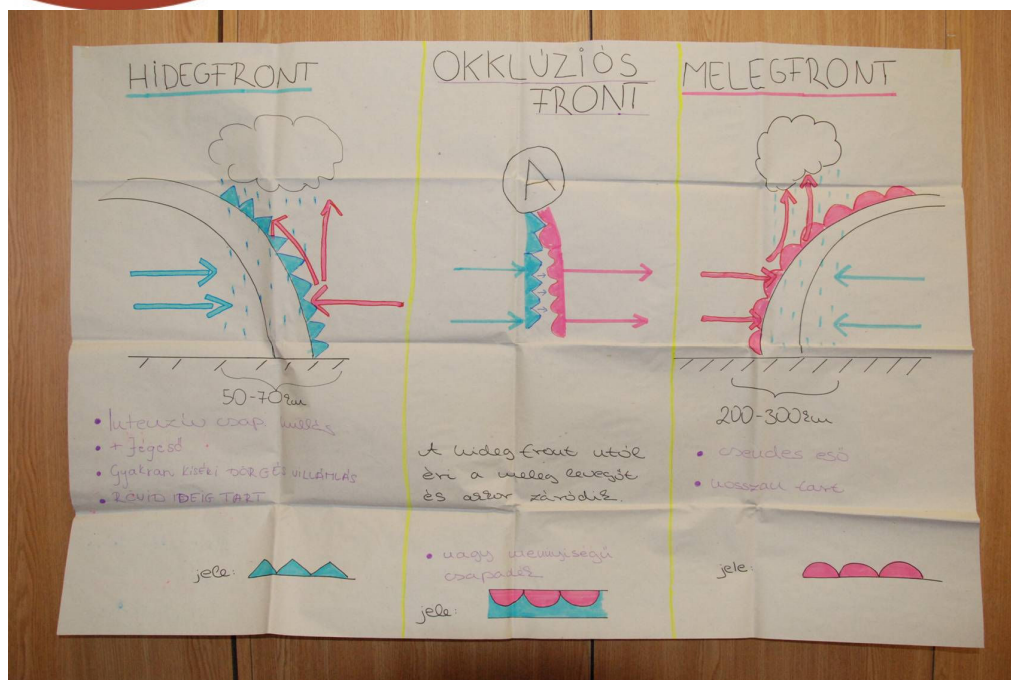 HIDEGFRONT
50-70 km
• Intenzív csap. hullás
• + Jégeső
• Gyakran kiséri DÖRGÉS VILLÁMLÁS
• RÖVID IDEIG TART
jele:
OKKLÚZIÓS
FRONT
A
A hideg front utól
éri a meleg levegőt
és akkor záródik.
• nagy menyiségű
csapadék
jele:
MELEGFRONT
200-300 km
• csendes eső
• hosszan tart
jele: